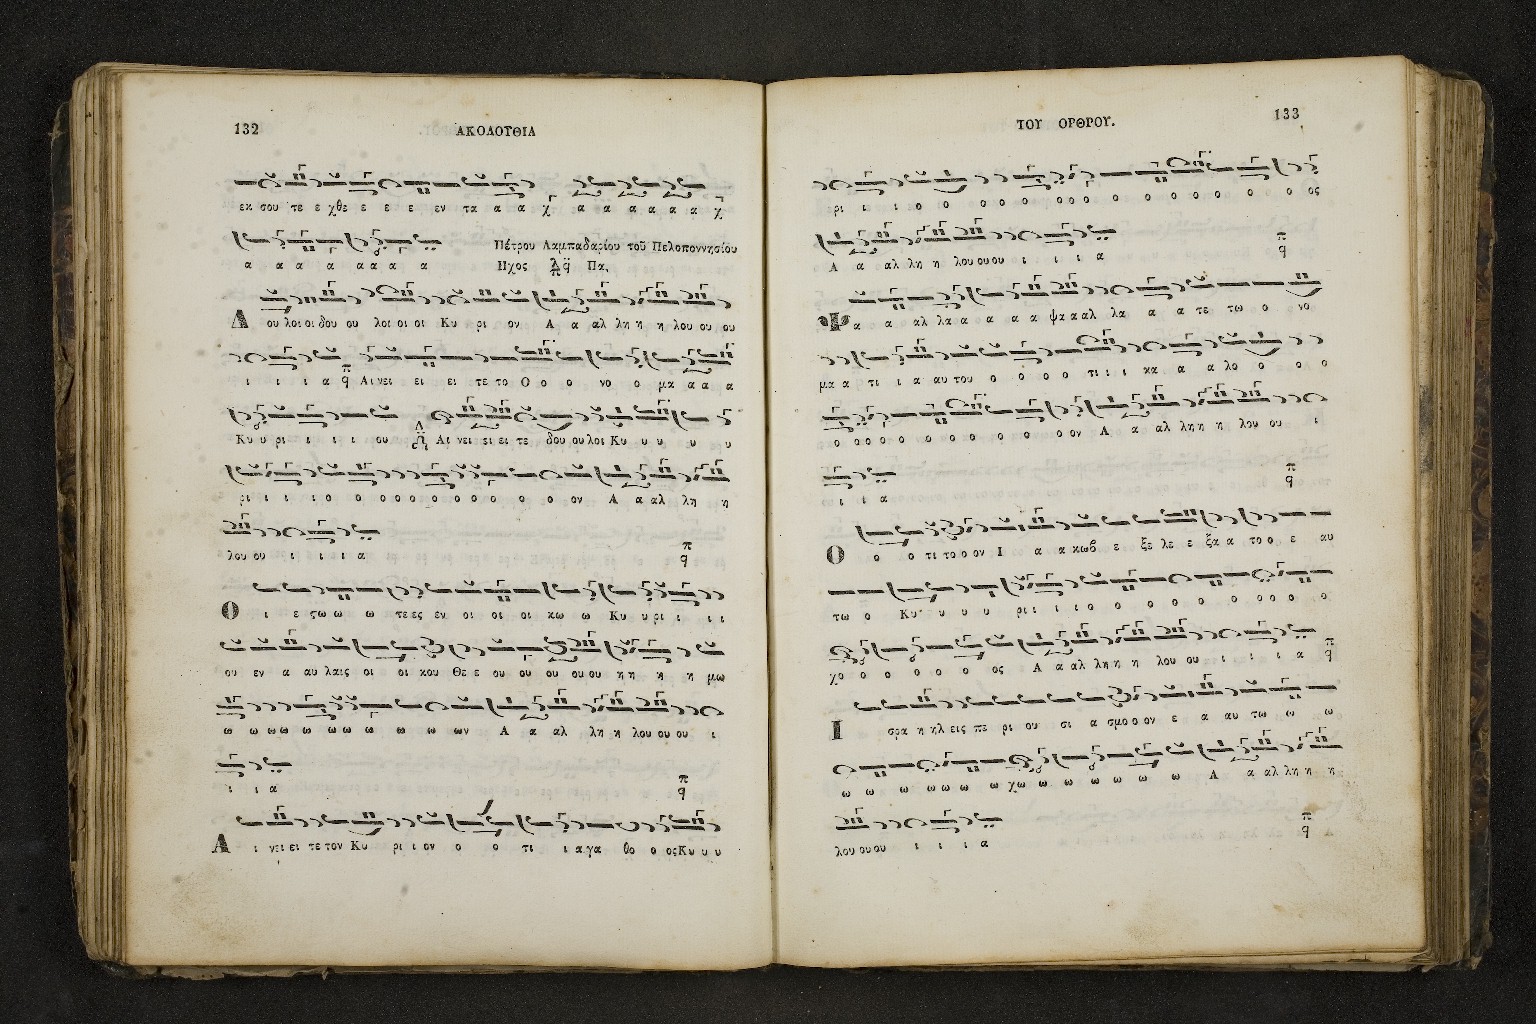 132
ΑΚΟΛΟΥΘΙΑ
εκ σου τε ε χθε ε ε ε εν τα α α χ α α α α α α χ
α α α α α α α α
Πέτρου Λαμπαδαρίου τοῦ Πελοποννησίου
Ηχος Πα.
Δ ου λοι οι δου ου λοι οι οι Κυ ρι ον Α α αλ λη η η λου ου ου
ι ι ι α Αι νει ει ει τε το Ο ο ο νο ο μα α α α
Κυ υ ρι ι ι ι ου Αι νει ει ει τε δου ου λοι Κυ υ υ υ υ
ρι ι ι ι ο ο ο ο ο ο ο ο ο ο ο ο ον Α α αλ λη η
λου ου ι ι ι α
Ο ι ε ςω ω ω τε ες εν οι οι οι κω ω Κυ υ ρι ι ι ι
ου εν α αυ λαις οι οι κου Θε ε ου ου ου ου ου η η η η μω
ω ω ω ω ω ω ω ω ω ω ων Α α αλ λη η λου ου ου ι
ι ι α
Α ι νει ει τε τον Κυ ρι ι ον ο ο τι ι α γα θο ο ος Κυ υ υ
ΤΟΥ ΟΡΘΡΟΥ.
133
ρι ι ι ο ο ο ο ο ο ο ο ο ο ο ο ο ο ο ος
Α α αλ λη η λου ου ου ι ι ι α
Ψ α α αλ λα α α α α ψα α αλ λα α α τε τω ο νο
μα α τι ι α αυ του ο ο ο ο τι ι ι κα α α λο ο ο ο
ο ο ο ο ο ο ο ο ο ο ο ον Α α αλ λη η η λου ου ι
ι ι α
Ο ο ο τι το ο ον Ι α α κωβ ε ξε λε ε ξα α το ο ε αυ
τω ο Κυ υ υ υ ρι ι ι ι ο ο ο ο ο ο ο ο ο ο
χο ο ο ο ο ο ος Α α αλ λη η η λου ου ι ι ι α
Ι σρα η ηλ εις πε ρι ου σι α σμο ο ον ε α αυ τω ω ω
ω ω ω ω ω ω ω χω ω ω ω ω ω ω Α α αλ λη η η
λου ου ου ι ι ι α